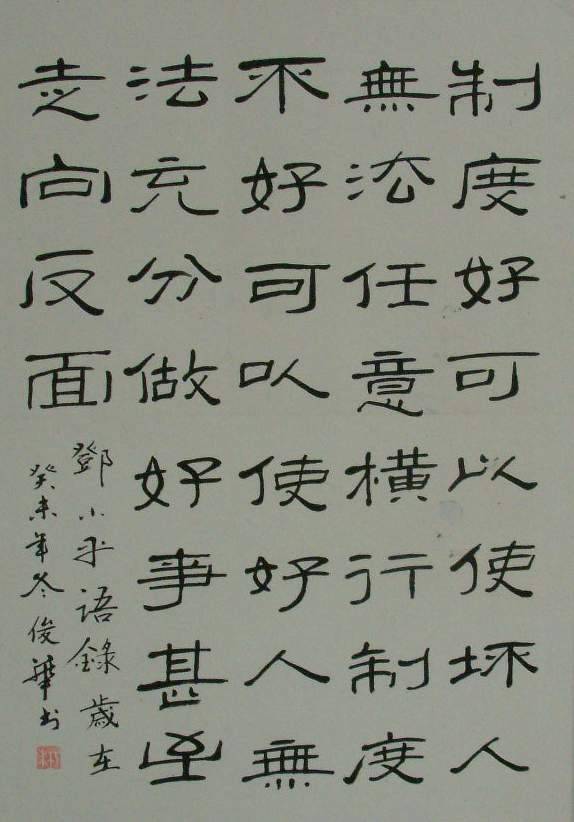 制度好可以使坏人
無法任意橫行制度
不好可以使好人無
法充分做好事甚至
走向反面
鄧小平語錄歲在
癸未年冬俊華书